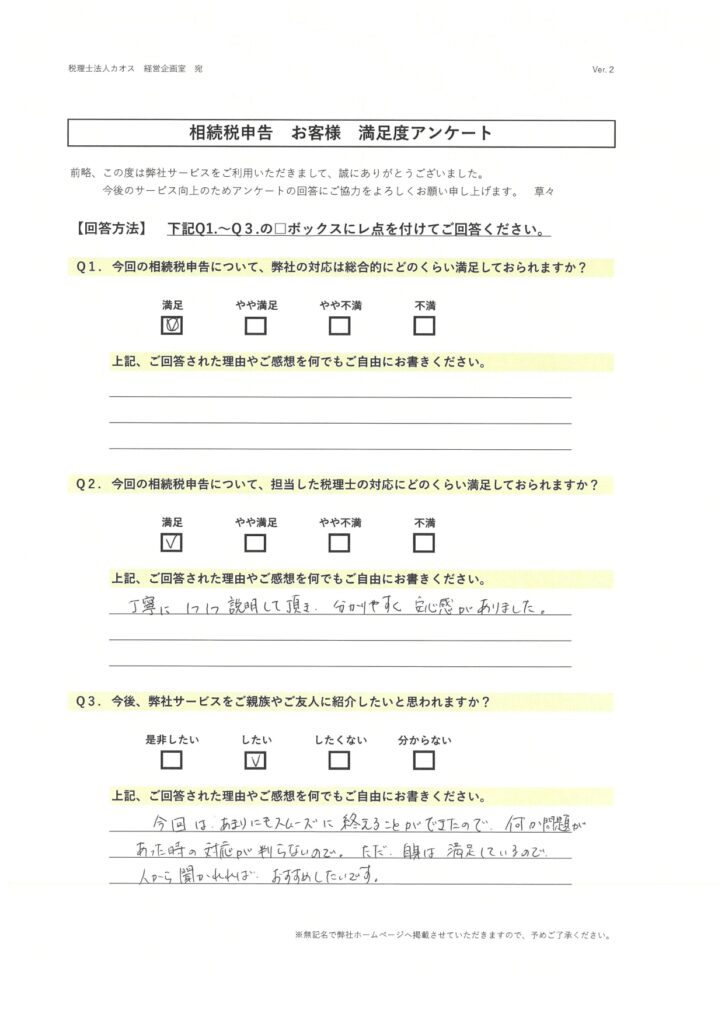 税理士法人カオス　経営企画室　宛
Ver. 2
相続税申告　お客様　満足度アンケート
前略、この度は弊社サービスをご利用いただきまして、誠にありがとうございました。
今後のサービス向上のためアンケートの回答にご協力をよろしくお願い申し上げます。　草々
【回答方法】　下記Q1.～Q３.の□ボックスにレ点を付けてご回答ください。
Q１．今回の相続税申告について、弊社の対応は総合的にどのくらい満足しておられますか？
満足　やや満足　やや不満　不満
上記、ご回答された理由やご感想を何でもご自由にお書きください。
Q２．今回の相続税申告について、担当した税理士の対応にどのくらい満足しておられますか？
満足　やや満足　やや不満　不満
上記、ご回答された理由やご感想を何でもご自由にお書きください。
丁寧に1つ1つ説明して頂き、分かりやすく安心感がありました。
Q３．今後、弊社サービスをご親族やご友人に紹介したいと思われますか？
是非したい　したい　したくない　分からない
上記、ご回答された理由やご感想を何でもご自由にお書きください。
今回は、あまりにもスムーズに終えることができたので、何か問題が
あった時の対応が判らないので。ただ、自身は満足しているので、
人から聞かれれば、おすすめしたいです。
※無記名で弊社ホームページへ掲載させていただきますので、予めご了承ください。